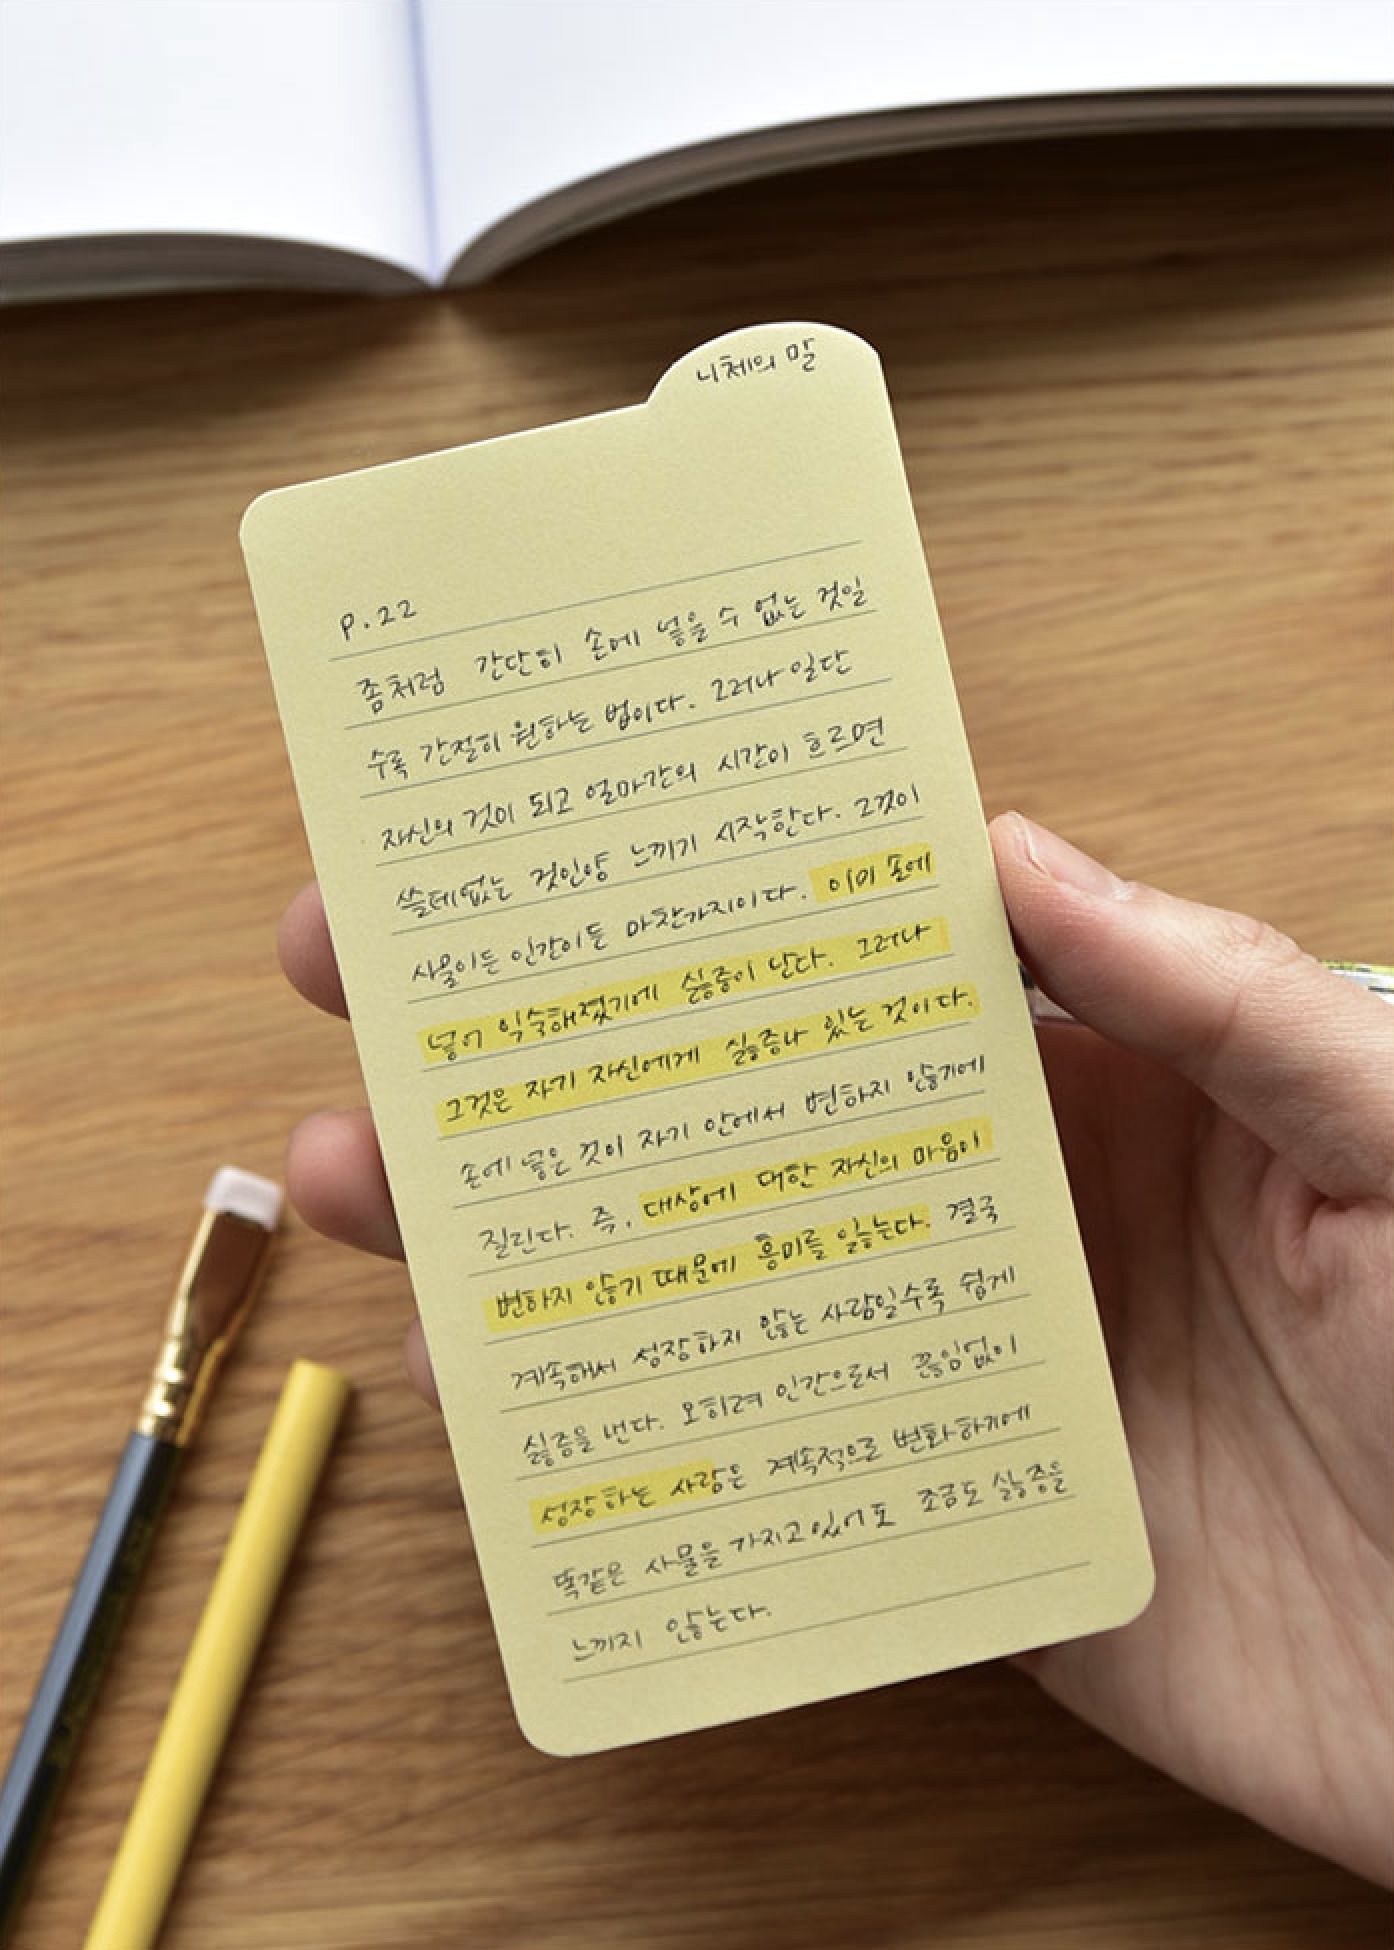 니체의 말
P.22
좀처럼 간단히 손에 넣을 수 없는 것일
수록 간절히 원하는 법이다. 그러나 일단
자신의 것이 되고 얼마간의 시간이 흐르면
쓸데없는 것인양 느끼기 시작한다. 그것이
사물이든 인간이든 마찬가지이다. 이미 손에
넣어 익숙해졌기에 싫증이 난다. 그러나
그것은 자기 자신에게 싫증나 있는 것이다.
손에 넣은 것이 자기 안에서 변하지 않기에
질린다. 즉, 대상에 대한 자신의 마음이
변하지 않기 때문에 흥미를 잃는다. 결국
계속해서 성장하지 않는 사람일수록 쉽게
싫증을 낸다. 오히려 인간으로서 끊임없이
성장하는 사람은 계속적으로 변화하기에
똑같은 사물을 가지고 있어도 조금도 싫증을
느끼지 않는다.